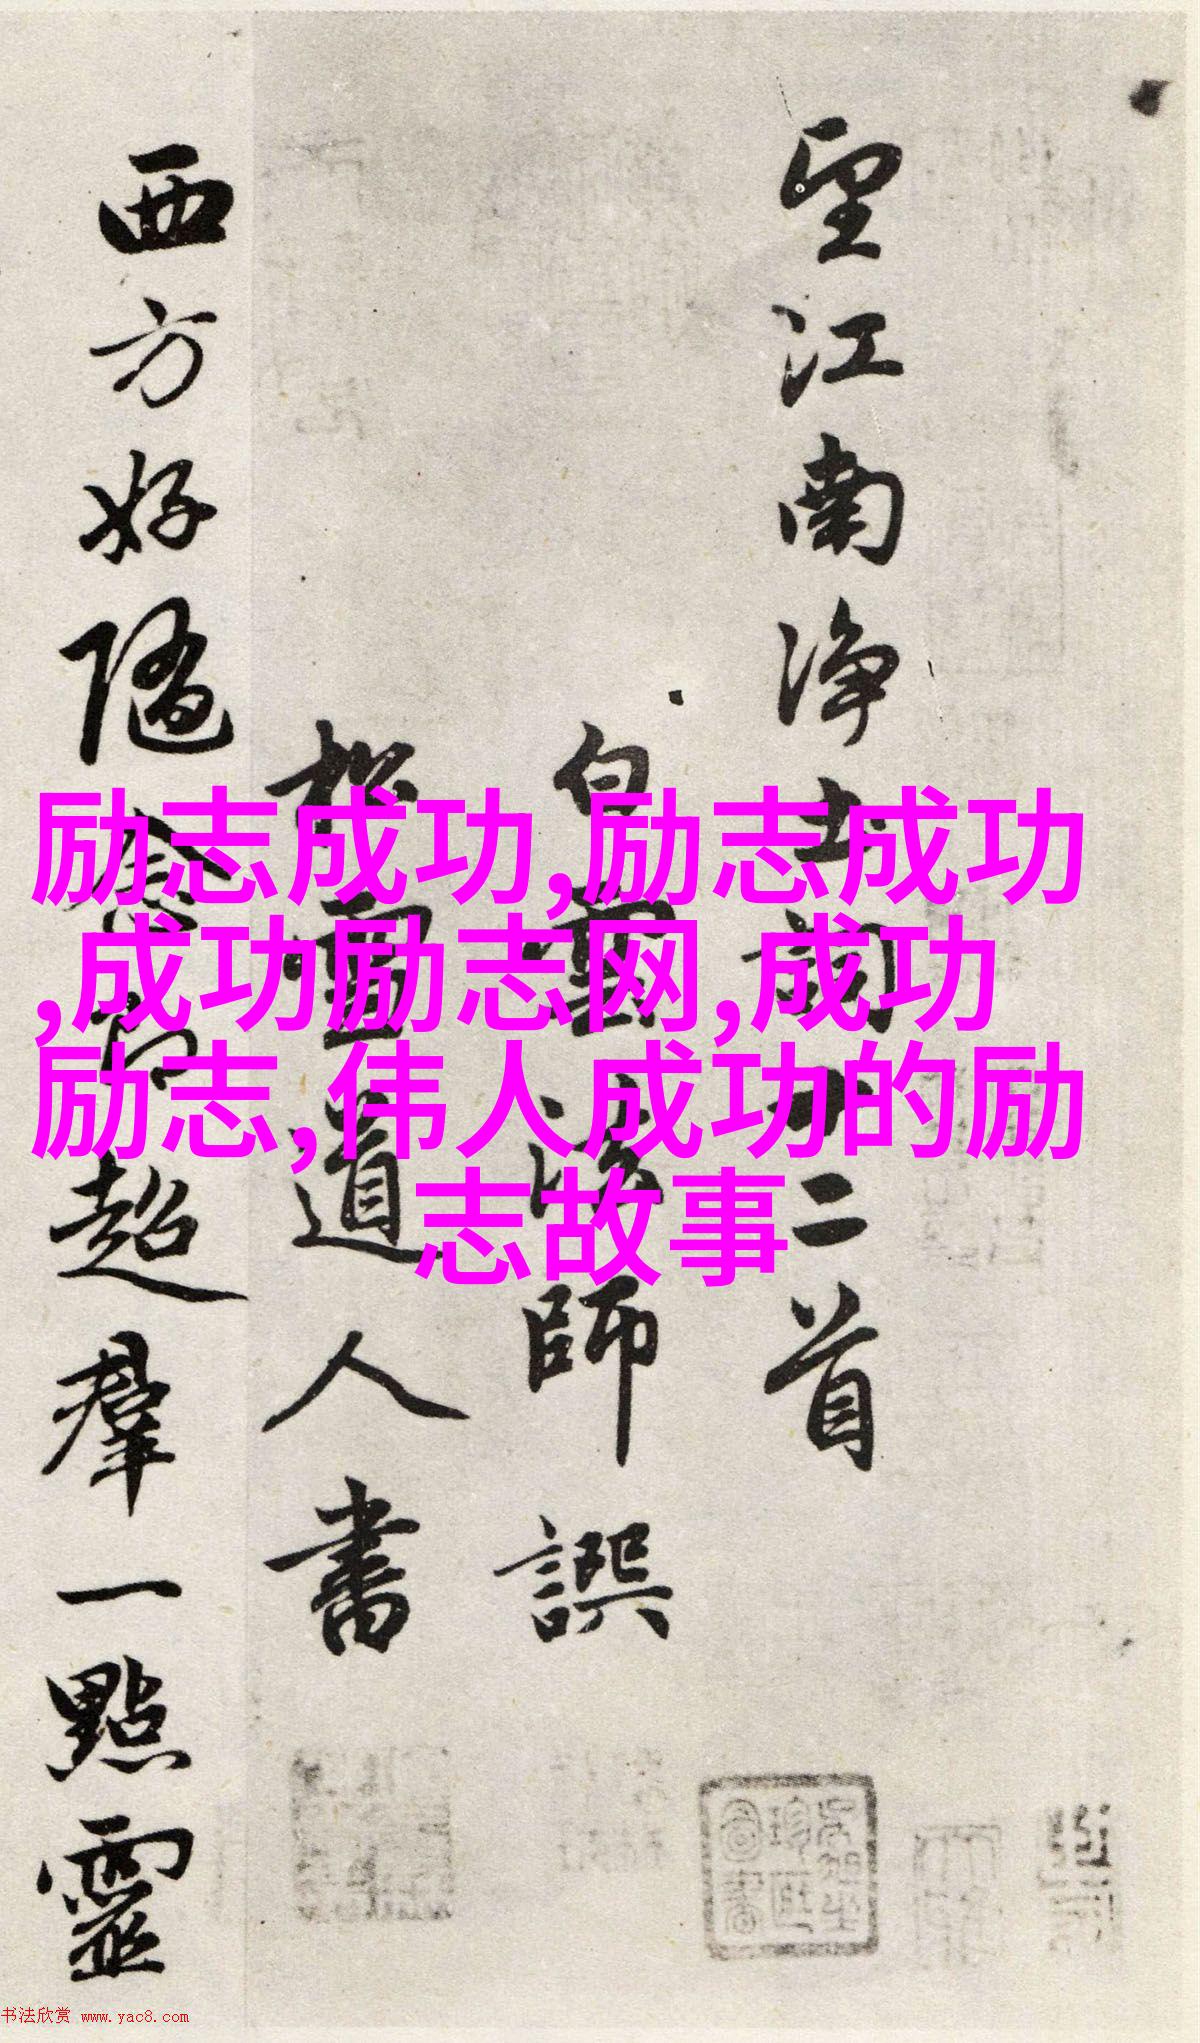 励志成功,励志成功
,成功励志网,成功
励志,伟人成功的励
志故事
望江南淨土詞十二首
白雲法師譔
松雪道人書
西方好隨念即超羣一點靈
书法欣赏 www.yac8.com